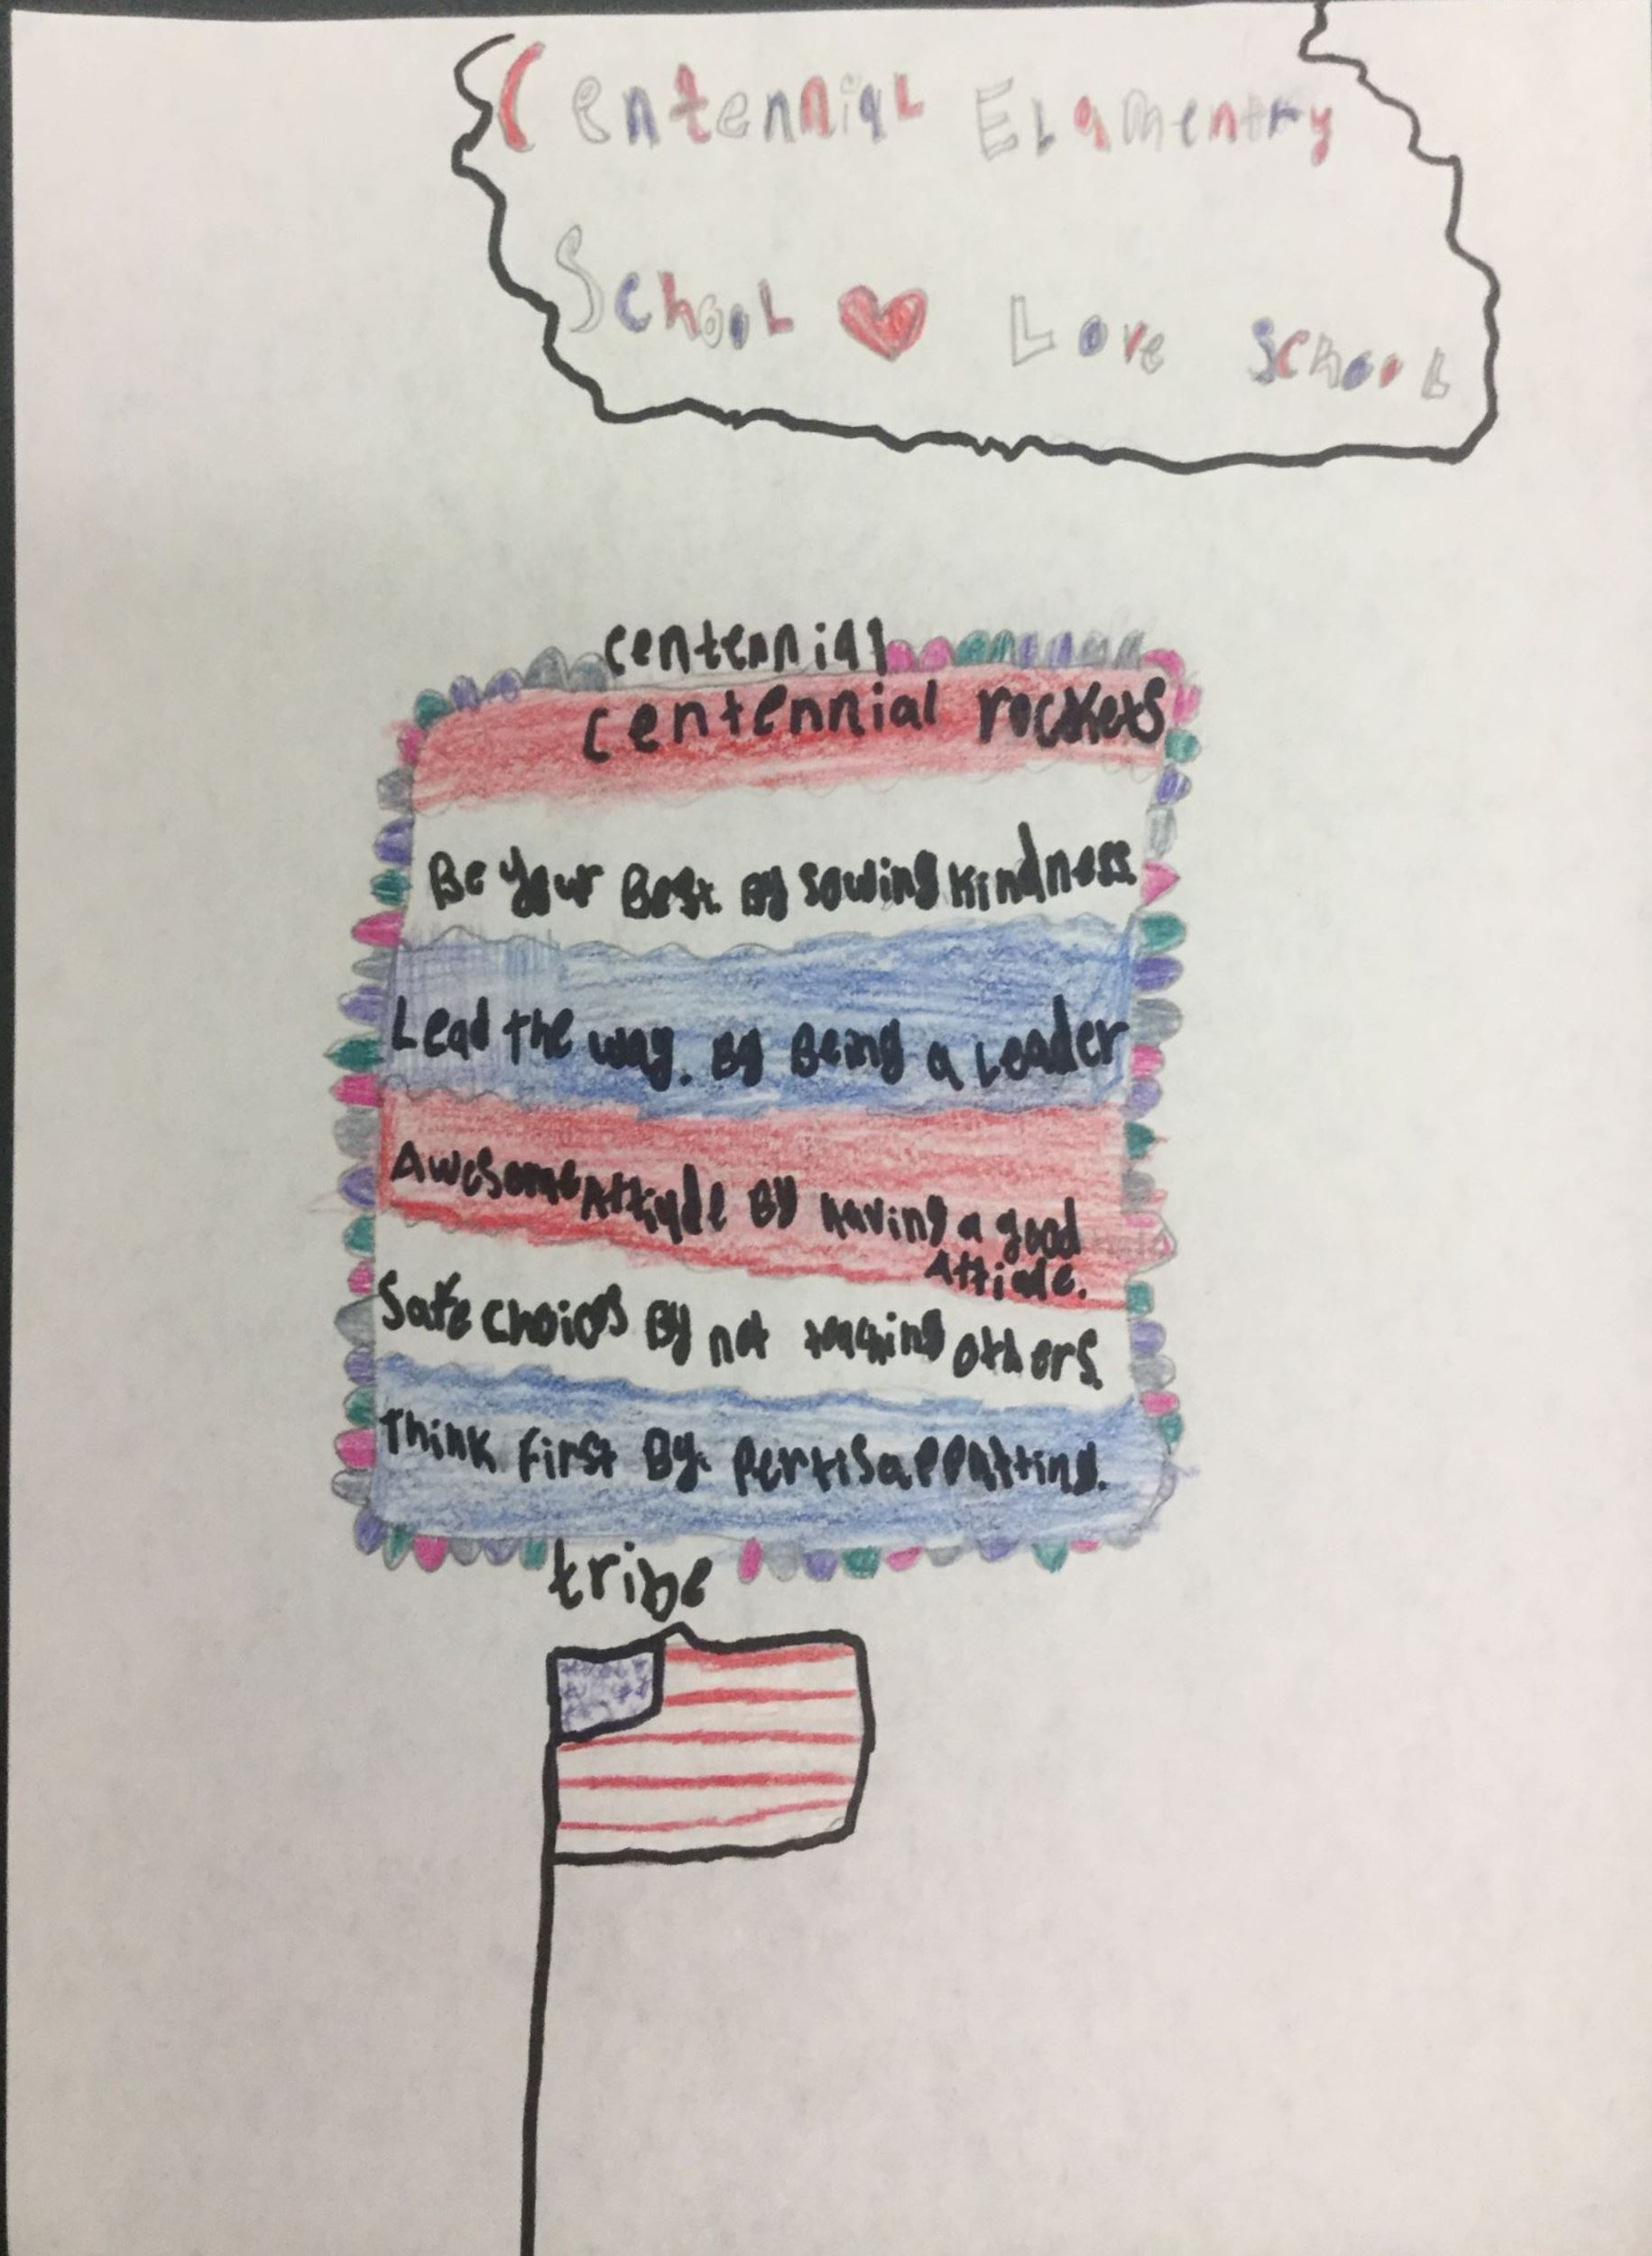 Centennial Elamentry
School Love School
centennial
centennial rockets
Be Your Best. By sowing kindness.
Lead the way. By Being a Leader
Awesome Attiude By having a good
Attiude.
Safe choices By not teaching others.
Think First By. Pertisappatting.
tribe